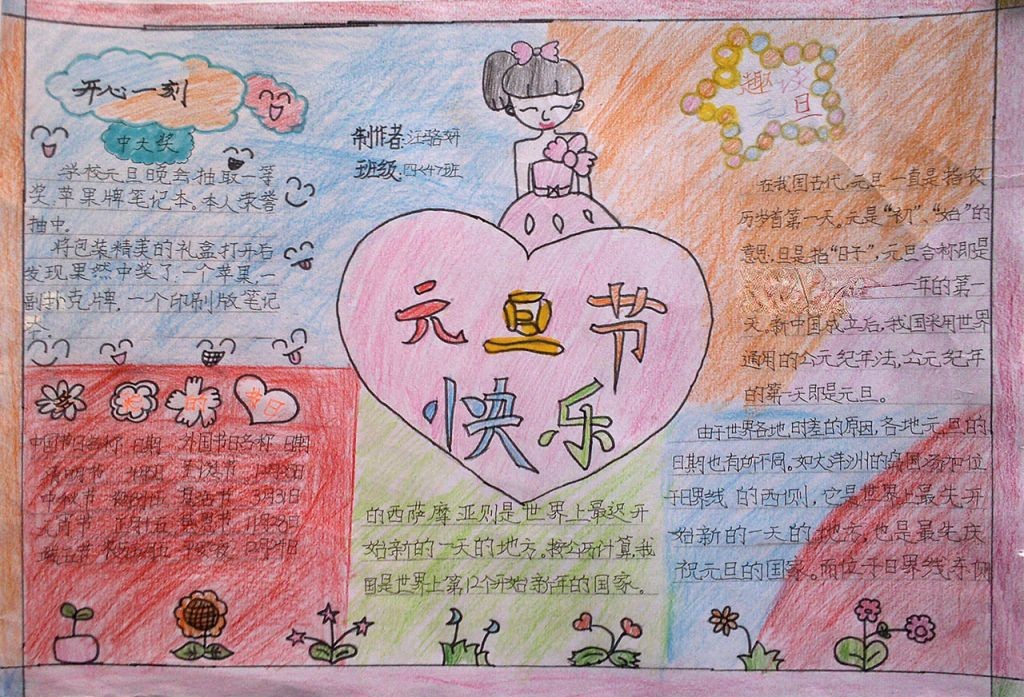 开心一刻
中大奖
学校元旦晚会抽取一等
奖,苹果牌笔记本。本人荣誉
抽中。
将包装精美的礼盒打开后
发现果然中奖了,一个苹果,一
副扑克牌,一个印刷版笔记
本。
制作者:江骆妍
班级:四<4>班
元旦节
快乐
趣谈
元旦
在我国古代,元旦一直是指农
历岁首第一天。元是“初”、“始”的
意思,旦是指“日子”,元旦合称即是
一年的第一
天。新中国成立后,我国采用世界
通用的公元纪年法,公元纪年
的第一天即是元旦。
由于世界各地时差的原因,各地元旦的
日期也有所不同。如大洋洲的岛国汤加位
于日界线 的西侧,它是世界上最先开
始新的一天的地方,也是最先庆
祝元旦的国家。而位于日界线东侧
的西萨摩亚则是世界上最迟开
始新的一天的地方。按公历计算,我
国是世界上第12个开始新年的国家。
节日
中国节日名称 日期 外国节日名称 日期
清明节
中秋节 3月3日
元宵节 正月十五
端五节